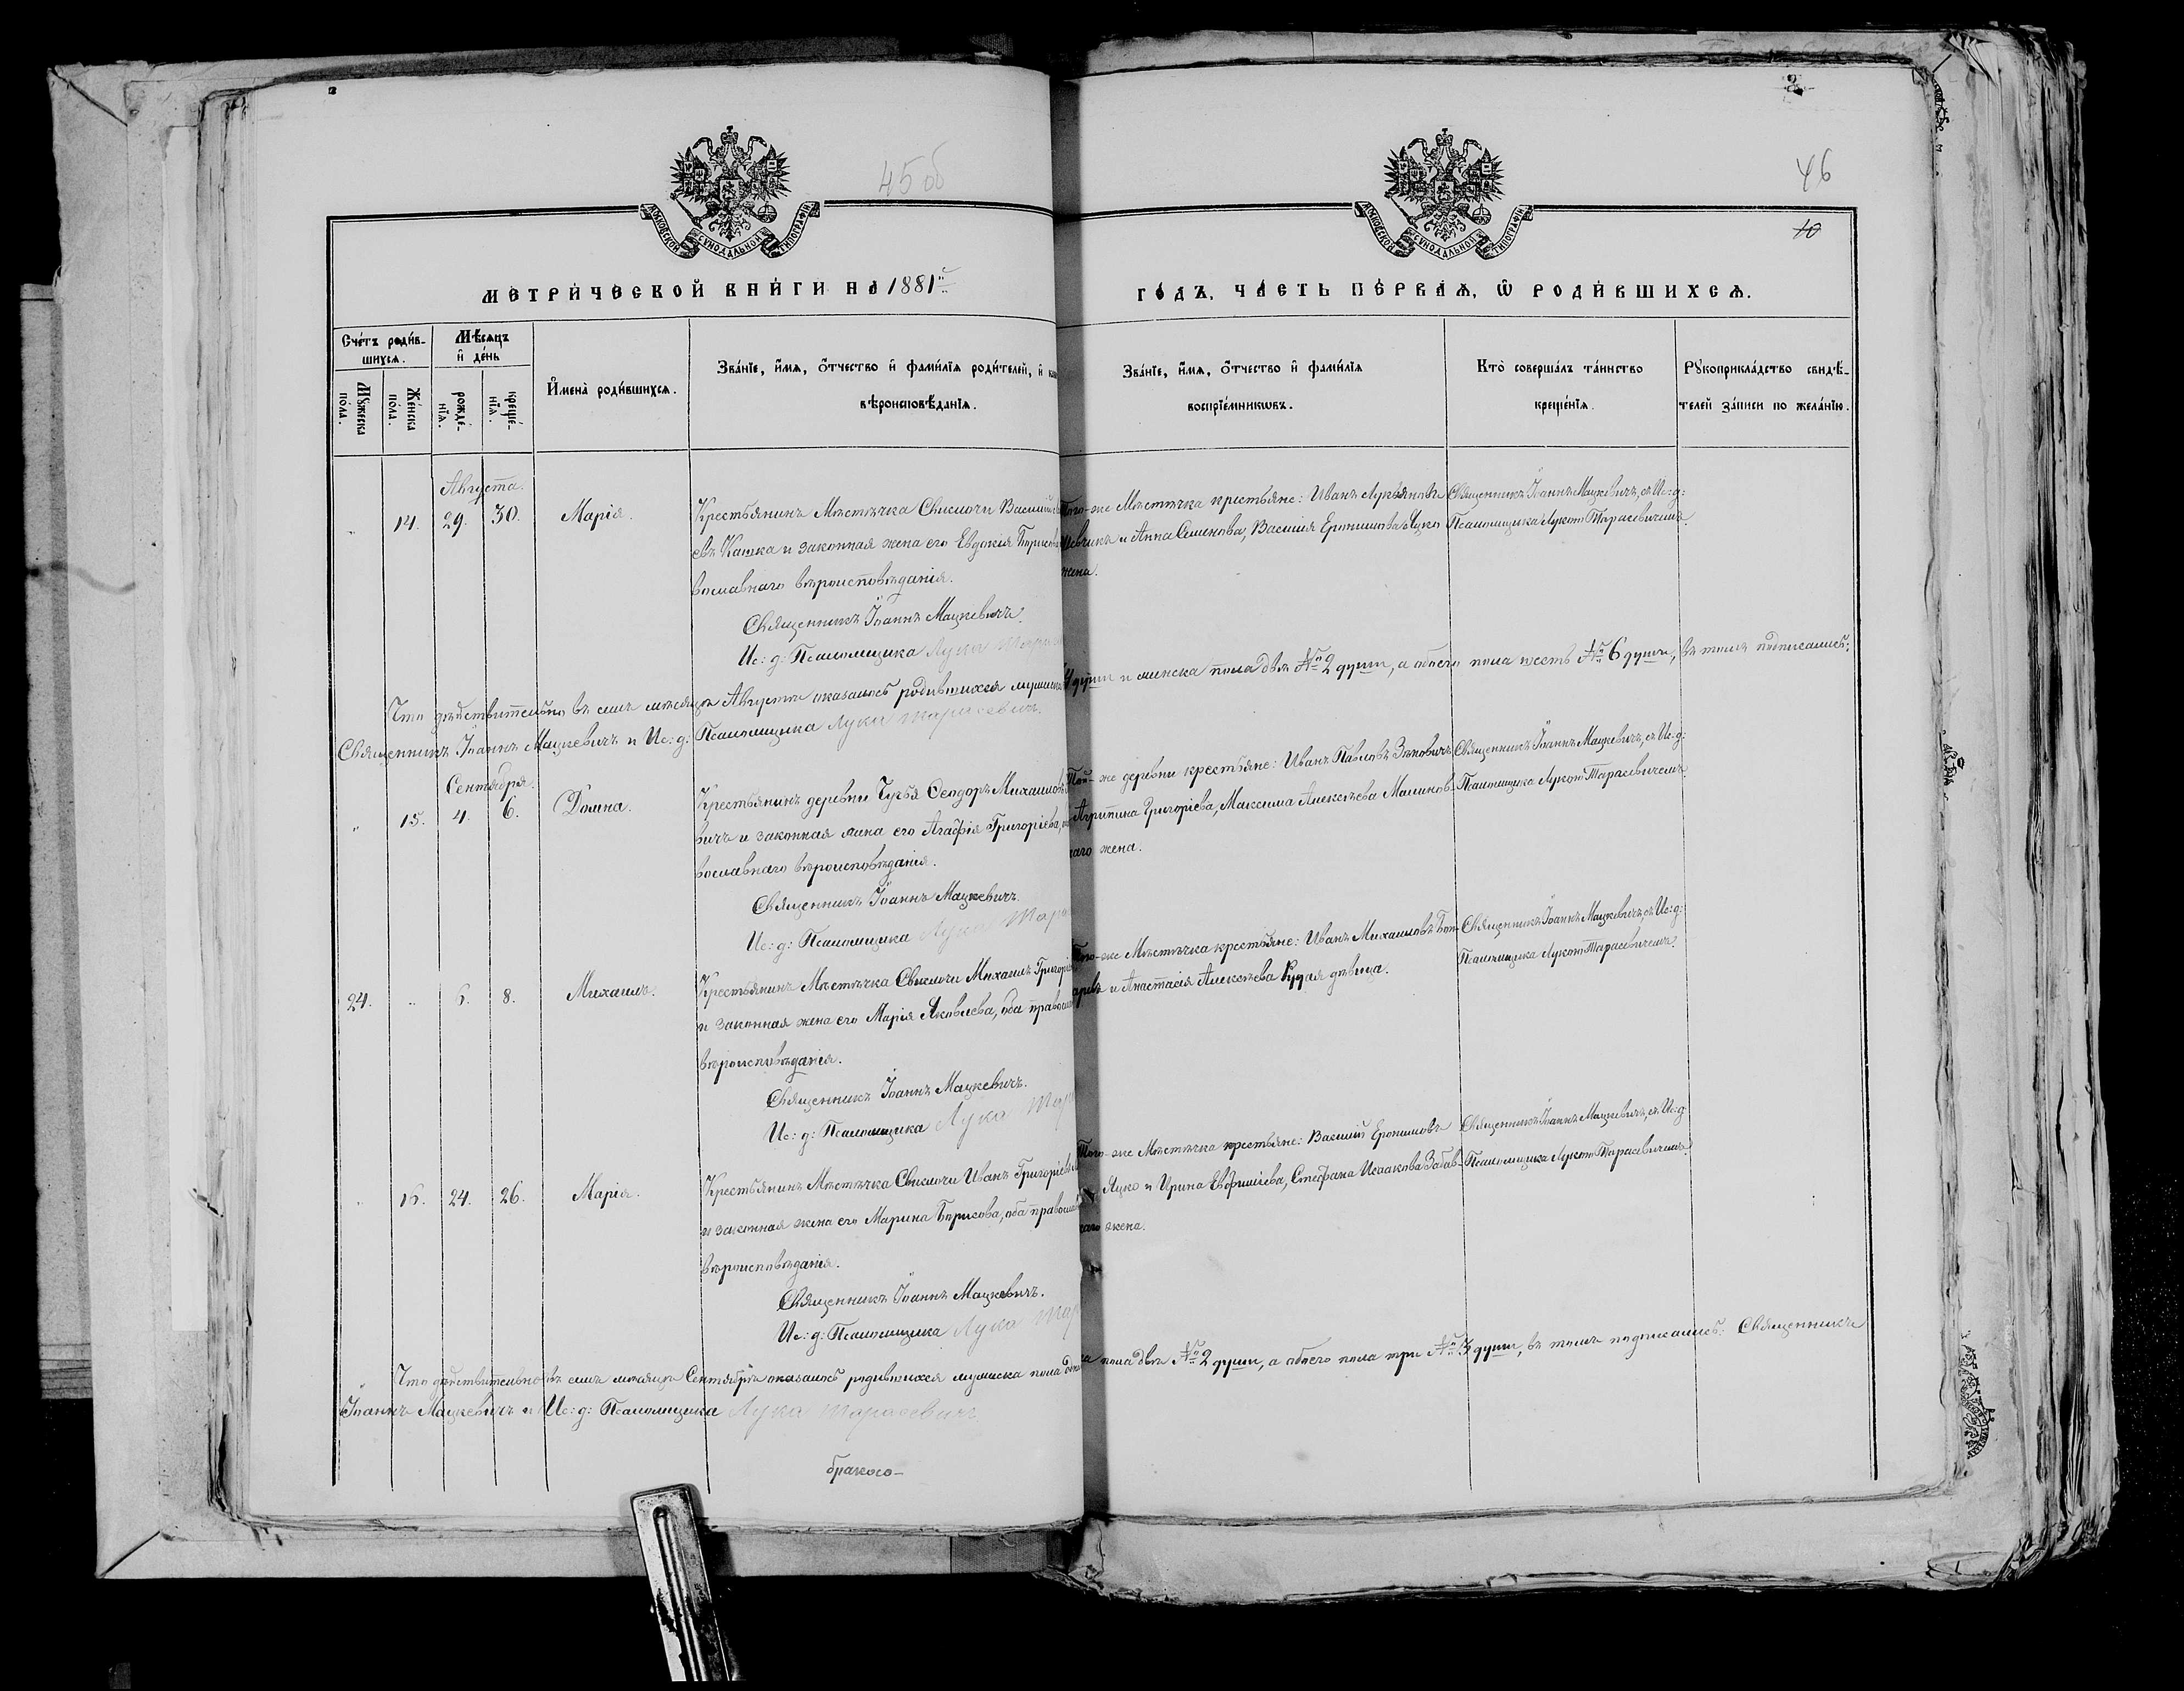 45 об
46
10
МОСКОВСКОЙ СУНОДАЛЬНОЙ ТИПОГРАФІИ
МОСКОВСКОЙ СУНОДАЛЬНОЙ ТИПОГРАФІИ
МЕТРИ́ЧЕСКОЙ КНИ́ГИ НА 1881й
ГО́ДЪ, ЧА́СТЬ ПЕ́РВАЯ, Ѿ РОДИ́ВШИХСЯ.
Сче́тъ роди́в-
шихся.
Мꙋжеска по́ла.
Же́нска по́ла.
Мѣ́сяцъ
и҆ де́нь
рожде́-
нїя.
креще́-
нїя.
И҆мена̀ роди́вшихся.
Зва́нїе, и҆́мя, ѻ҆́тчество и҆ фами́лїя роди́телей, и҆
вѣроисповѣ́данїя.
Зва́нїе, и҆́мя, ѻ҆́тчество и҆ фами́лїя
воспрїе́мникѡвъ.
Кто̀ соверша́лъ та́инство
креще́нїя.
Рꙋкоприкла́дство свидѣ́-
телей за́писи по жела́нїю.
Августа.
" 14. 29. 30. Марія.
Крестьянинъ Мѣстечка Свислочи Василій
евъ Кашка и законная жена его Евдокія Борисова
вославнаго вѣроисповѣданія.
Священникъ Іоаннъ Мацкевичъ.
Ис: д: Псаломщика Лука
Того-же Мѣстечка крестьяне: Иванъ Лукьяновъ
Шевчикъ и Анна Семенова, Василія Еронимова Яцко
жена.
Священникъ Іоаннъ Мацкевичъ, съ Ис: д:
Псаломщика Лукою Тарасевичемъ.
Что дѣйствительно въ семъ мѣсяцѣ Августѣ оказалось родившихся мужеска
душъ и женска пола двѣ № 2 души, а обоего пола шесть № 6 душъ, въ томъ подписались:
Священникъ Іоаннъ Мацкевичъ и Ис: д: Псаломщика Лука Тарасевичъ.
Сентября.
" 15. 4. 6. Домна.
Крестьянинъ деревни Чучья Ѳеодоръ Михаиловъ
вичъ и законная жена его Агафія Григоріева,
вославнаго вѣроисповѣданія.
Священникъ Іоаннъ Мацкевичъ.
Ис: д: Псаломщика Лука
Той-же деревни крестьяне: Иванъ Павловъ Зѣновичъ
Агрипина Григоріева, Максима Алексѣева Малинов-
скаго жена.
Священникъ Іоаннъ Мацкевичъ, съ Ис: д:
Псаломщика Лукою Тарасевичемъ.
24. " 6. 8. Михаилъ.
Крестьянинъ Мѣстечка Свислочи Михаилъ Григорі
и законная жена его Марія Яковлева, оба правосл
вѣроисповѣданія.
Священникъ Іоаннъ Мацкевичъ.
Ис: д: Псаломщика Лука
Того-же Мѣстечка крестьяне: Иванъ Михаиловъ Бон-
дарикъ и Анастасія Алексѣева Рудая дѣвица.
Священникъ Іоаннъ Мацкевичъ, съ Ис: д:
Псаломщика Лукою Тарасевичемъ.
" 16. 24. 26. Марія.
Крестьянинъ Мѣстечка Свислочи Иванъ Григоріевъ
и законная жена его Марина Борисова, оба правосл
вѣроисповѣданія.
Священникъ Іоаннъ Мацкевичъ.
Ис: д: Псаломщика Лука
Того-же Мѣстечка крестьяне: Василій Еронимовъ
Яцко и Ирина Евфиміева, Стефана Исаакова Забав-
скаго жена.
Священникъ Іоаннъ Мацкевичъ, съ Ис: д:
Псаломщика Лукою Тарасевичемъ.
Что дѣйствительно въ семъ мѣсяцѣ Сентябрѣ оказалось родившихся мужеска пола
пола двѣ № 2 души, а обоего пола три № 3 души, въ томъ подписались: Священникъ
Іоаннъ Мацкевичъ и Ис: д: Псаломщика Лука Тарасевичъ
бракосо-